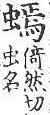 䗡
倚然切
虫名